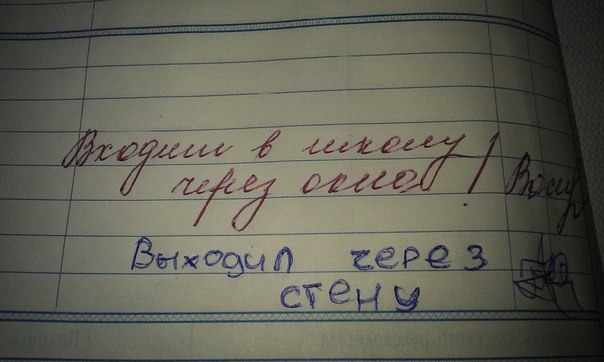 Входил в школу
через окно!
Выходил через
стену